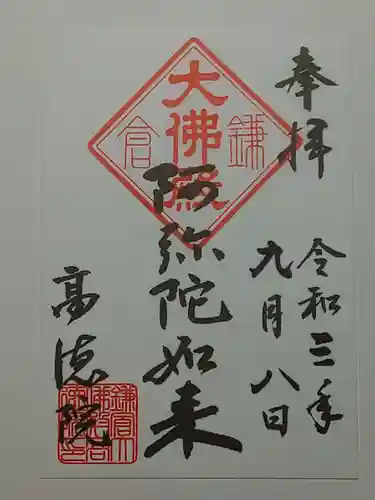 奉拝
令和三年
九月八日
鎌倉
大佛殿
阿弥陀如来
高徳院